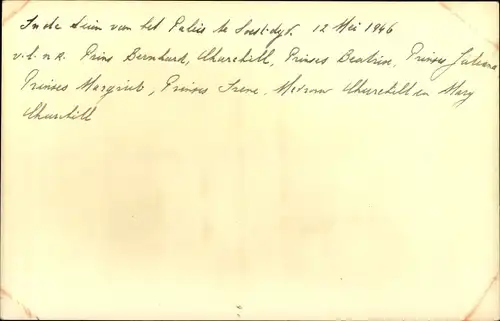 In de tuin van het Paleis te Soestdijk. 12 Mei 1946
v.l.n.r. Prins Bernhard, Churchill, Prinses Beatrix, Prinses Juliana
Prinses Margriet, Prinses Irene, Mevrouw Churchill en Mary
Churchill